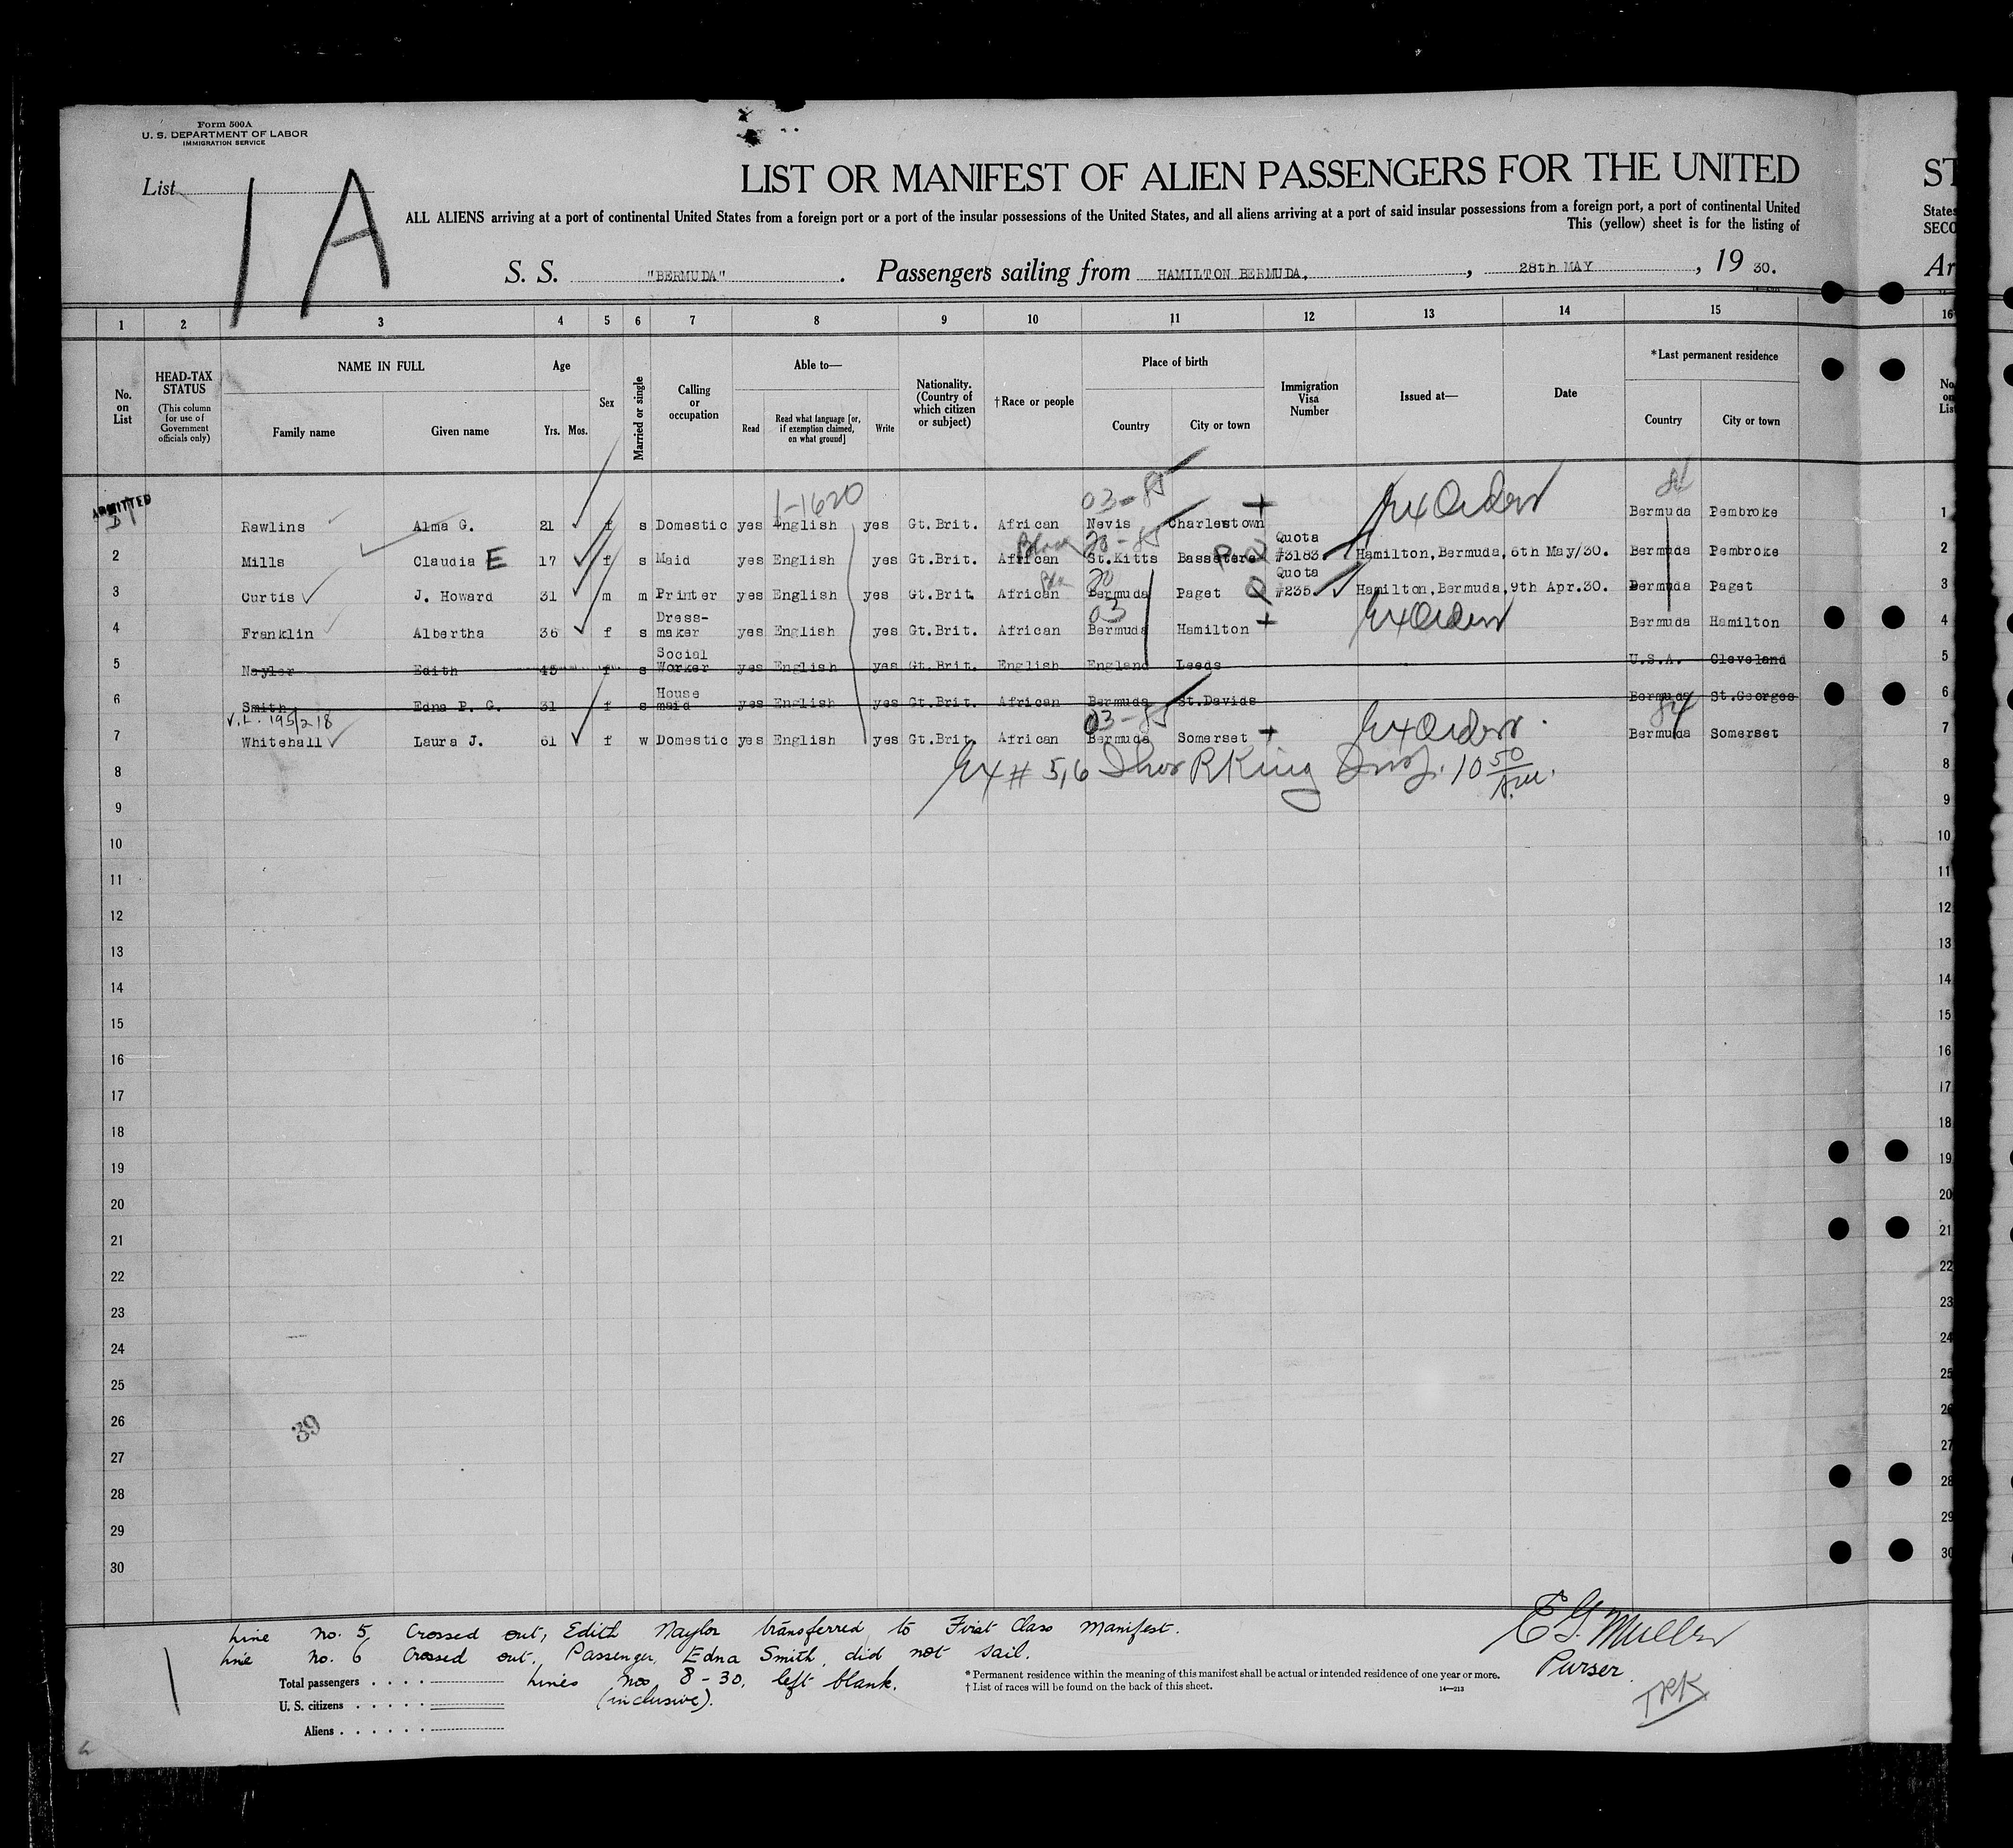 Form 500A
U. S. DEPARTMENT OF LABOR
IMMIGRATION SERVICE
List 1A
LIST OR MANIFEST OF ALIEN PASSENGERS FOR THE UNITED
ST
ALL ALIENS arriving at a port of continental United States from a foreign port or a port of the insular possessions of the United States, and all aliens arriving at a port of said insular possessions from a foreign port, a port of continental United
States
This (yellow) sheet is for the listing of
SECO
S. S. "BERMUDA". Passengers sailing from HAMILTON BERMUDA, , 28th MAY , 19 30.
Ar
1 2 3 4 5 6 7 8 9 10 11 12 13 14 15 16
No. on List
HEAD-TAX STATUS
(This column for use of Government officials only)
NAME IN FULL
Family name Given name
Age
Yrs. Mos.
Sex
Married or single
Calling or occupation
Able to—
Read Read what language [or, if exemption claimed, on what ground] Write
Nationality. (Country of which citizen or subject)
†Race or people
Place of birth
Country City or town
Immigration Visa Number
Issued at—
Date
*Last permanent residence
Country City or town
No. on List
ADMITTED
1-1620
03-85
1 Rawlins Alma G. 21 f s Domestic yes English yes Gt.Brit. African Nevis Charlestown + Ex Orders Bermuda Pembroke 1
Black 20-85
2 Mills Claudia E 17 f s Maid yes English yes Gt.Brit. African St.Kitts Basseterre Quota #3183 Hamilton,Bermuda, 6th May/30. Bermuda Pembroke 2
20
3 Curtis J. Howard 31 m m Printer yes English yes Gt.Brit. African Bermuda Paget Q Quota #235 Hamilton,Bermuda,9th Apr.30. Bermuda Paget 3
03
4 Franklin Albertha 36 f s Dress-maker yes English yes Gt.Brit. African Bermuda Hamilton + Ex Orders Bermuda Hamilton 4
5 Naylor Edith 45 f s Social Worker yes English yes Gt.Brit. English England Leeds U.S.A. Cleveland 5
6 Smith Edna P. G. 31 f s House maid yes English yes Gt.Brit. African Bermuda St.Davids Bermuda St.Georges 6
V.L. 195/218
03-85
7 Whitehall Laura J. 61 f w Domestic yes English yes Gt.Brit. African Bermuda Somerset + Ex Orders Bermuda Somerset 7
8 Ex # 5,6 R King Insp. 10 50 A.M. 8
9 9
10 10
11 11
12 12
13 13
14 14
15 15
16 16
17 17
18 18
19 19
20 20
21 21
22 22
23 23
24 24
25 25
26 26
39
27 27
28 28
29 29
30 30
Line no. 5 Crossed out, Edith Naylor transferred to First Class Manifest.
Line no. 6 Crossed out, Passenger, Edna Smith, did not sail.
Lines nos 8-30, left blank.
(inclusive).
E G Muller
Purser
Total passengers
U. S. citizens
Aliens
* Permanent residence within the meaning of this manifest shall be actual or intended residence of one year or more.
† List of races will be found on the back of this sheet.
14—213